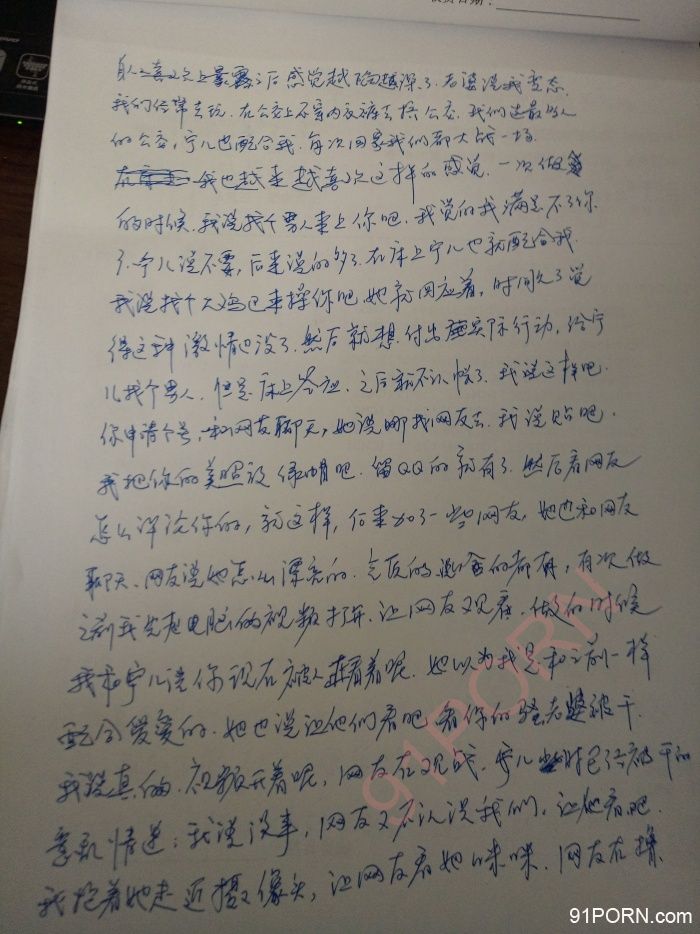 自从喜欢上暴露之后感觉越陷越深了。老婆说我变态.
我们经常去玩. 在公交上不穿内衣裤去挤公交. 我们选最多人
的公交, 宁儿也配合我. 每次回家我们都大战一场
我也越来越喜欢这样的感觉. 一次做
的时候. 我说找个男人来上你吧. 我觉的我满足不了你
了. 宁儿说不要, 后来说的多了. 在床上宁儿也就配合我.
我说找个大鸡巴来操你吧. 她就回应着, 时间久了觉
得这种激情也没了. 然后就想付出实际行动, 给宁
儿找个男人. 但是床上答应. 之后就不认帐了. 我说这样吧.
你申请个号, 和网友聊天, 她说哪找网友去. 我说贴吧.
我把你的美照放绿帽吧. 留QQ的就有了. 然后看网友
怎么评论你的, 就这样, 后来加了一些网友, 她也和网友
聊天. 网友说她怎么漂亮的. 的都有, 有次做
之前我先把电脑的视频打开. 让网友观看. 做的时候
我和宁儿说你现在被人看着呢. 她以为我是和之前一样
配合爱爱的. 她也说让他们看吧 看你的骚老婆被干.
我说真的. 视频开着呢, 网友在观战. 宁儿当时已经被干的
意乱情迷; 我说没事, 网友又不认识我们, 让他看吧.
我抱着她走近摄像头, 让网友看她咪咪. 网友在
91PORN
91PORN.com